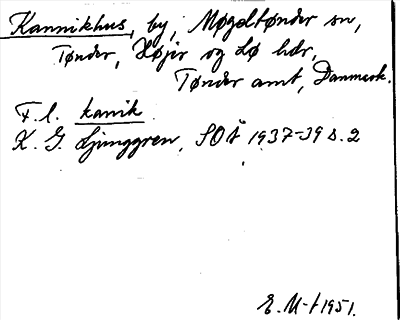 Kannikhus, by, Møgeltønder sn,
Tønder, Højer og Lø hdr,
Tønder amt, Danmark.
F. l. kanik
K. G. Ljunggren, SOÅ 1937-39 s. 2
E. M-t 1951.